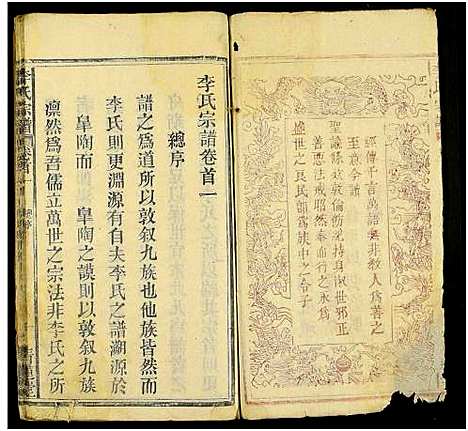 經傳千言萬語無非教人為善之
至意今譜
聖諭條欵敦倫飭紀持身淑世邪正
善惡法戒昭然奉而行之永為
盛世之良民即為族中之令子
李氏宗譜卷首一
總序
譜之為道所以敦叙九族也他族皆然而
李氏則更淵源有自夫李氏之譜溯源於
皐陶而 皐陶之謨則以敦叙九族
凛然為吾儒立萬世之宗法非李氏之所
李氏宗譜